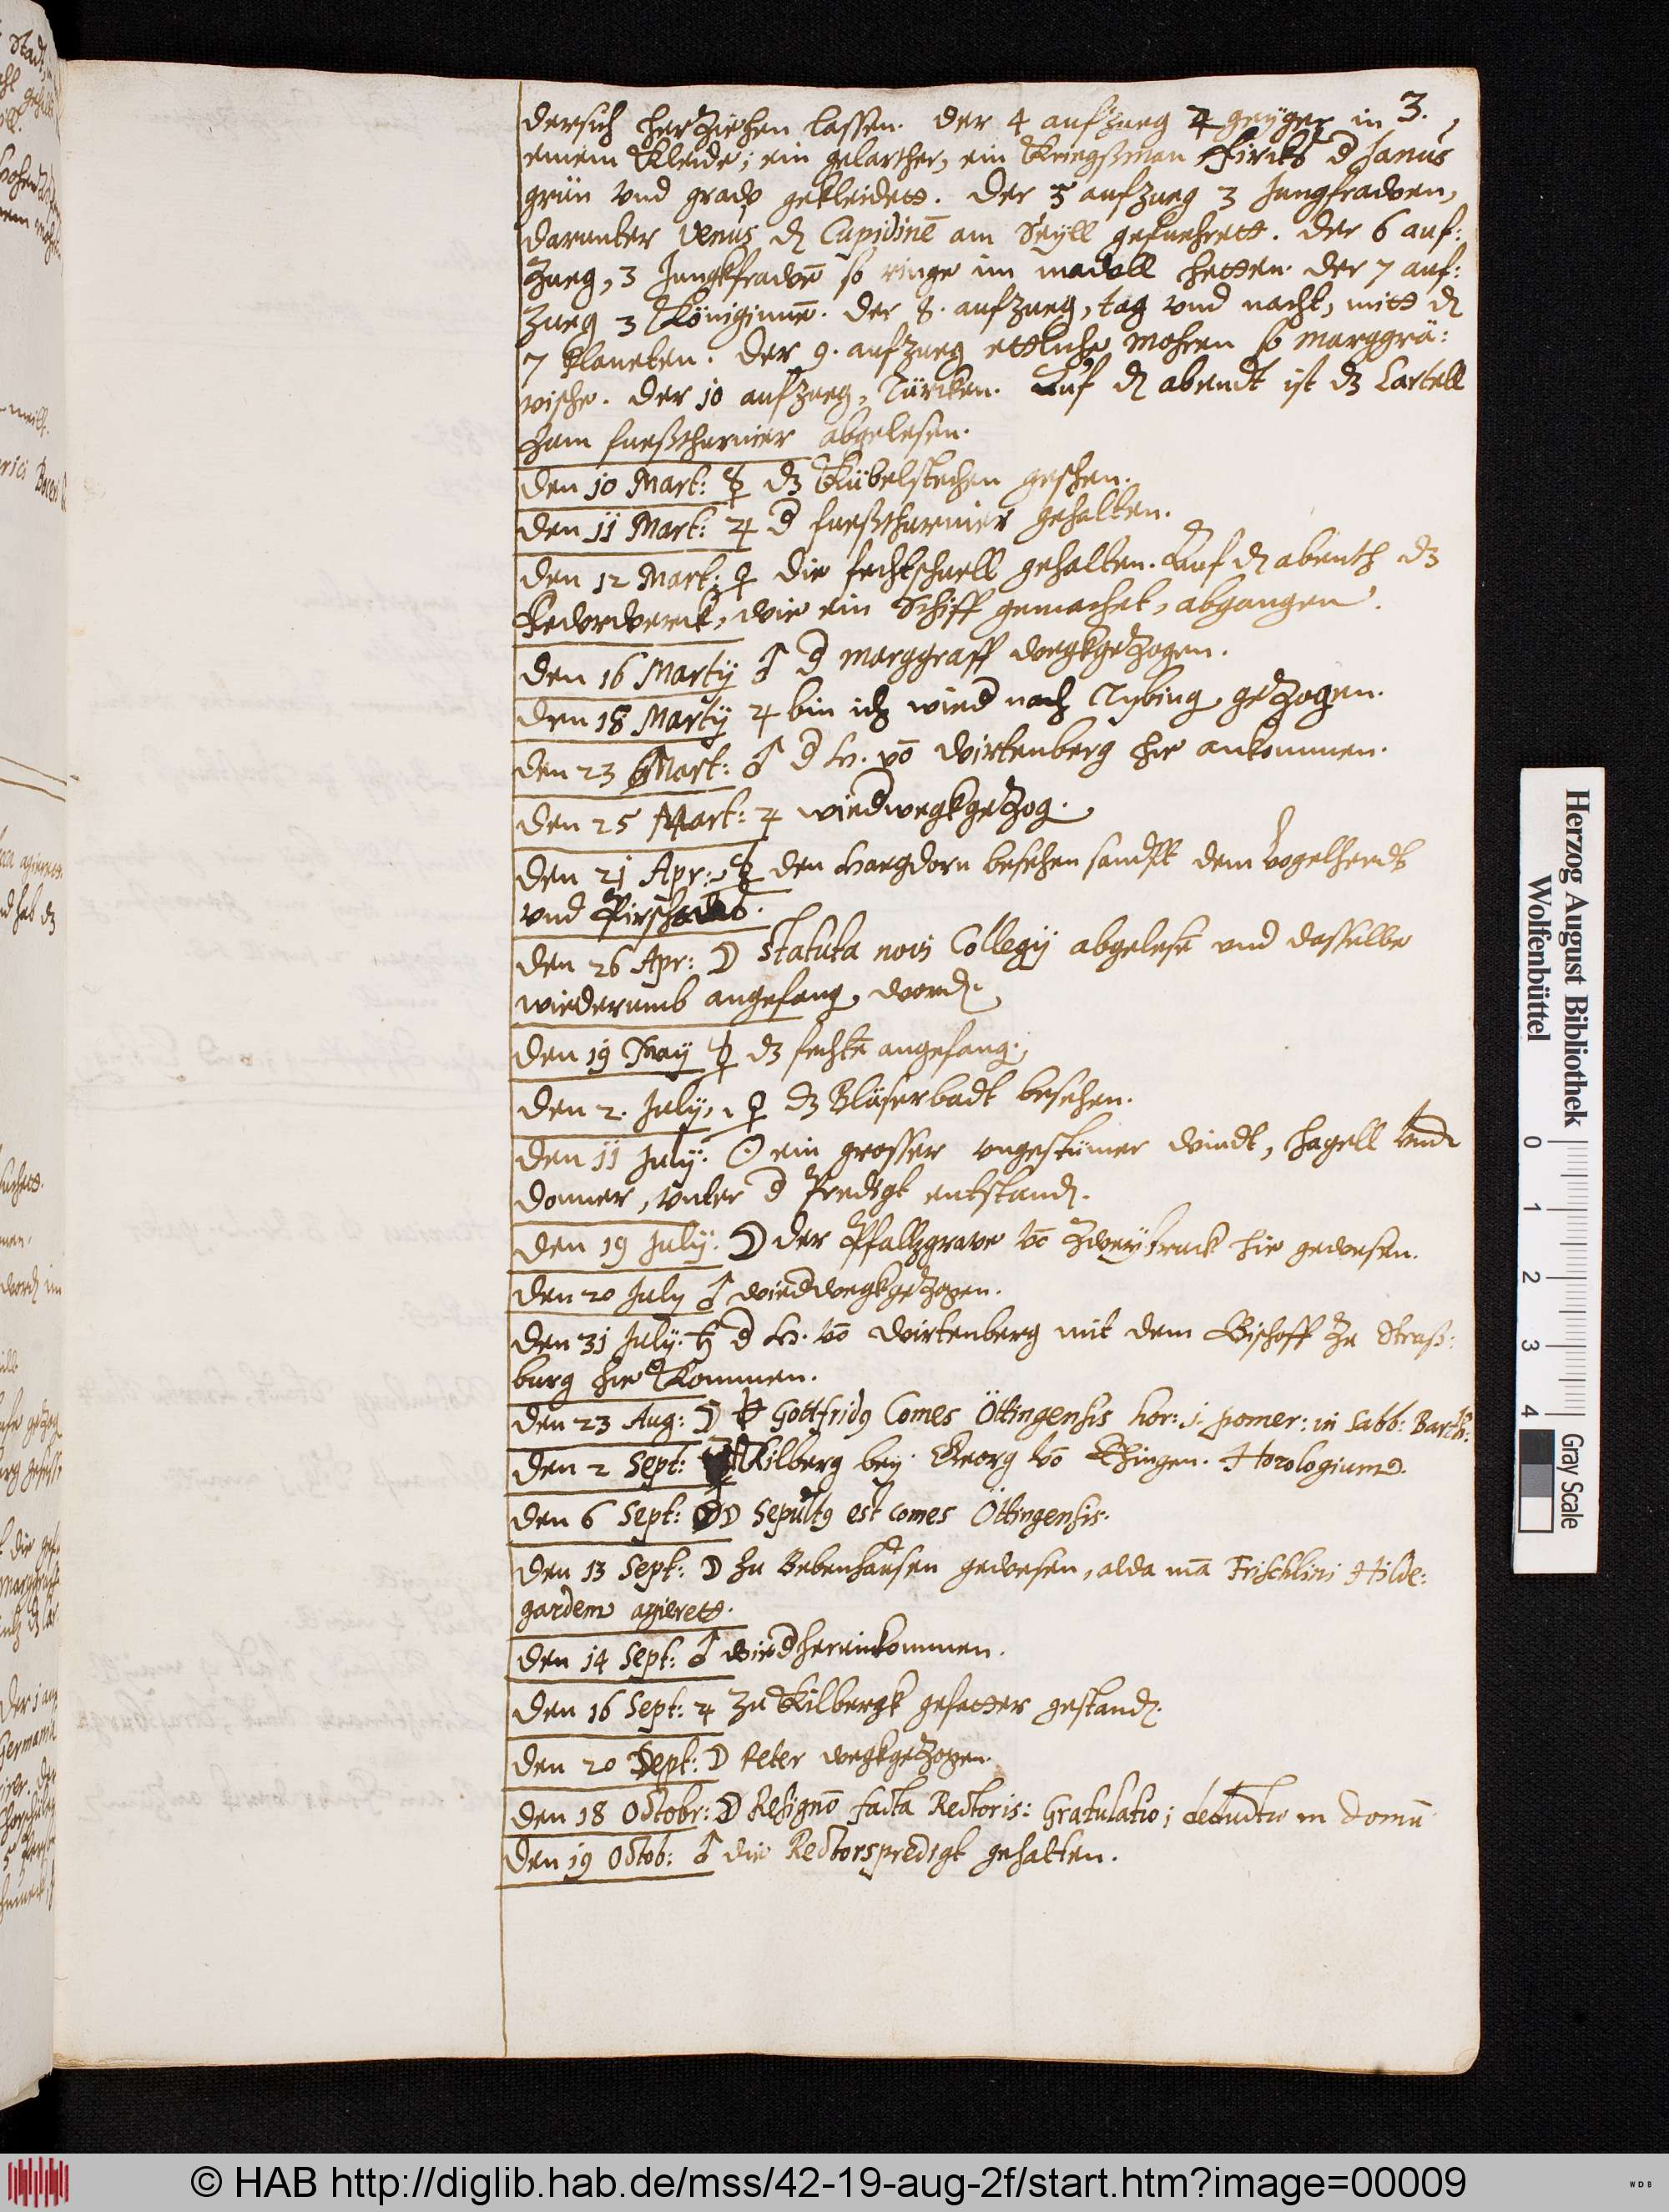 3.
dersich herziehen lassen. Der 4 aufzueg 4 geyger in
einem Kleide; ein gelarther, ein Kriegßman hircks d Janus
grün vnd graw gekleidett. Der 5 aufzueg 3 Jungfrawen,
darunter Venus dz Cupidinē am Seyll gefuehrett. Der 6 auf:
zueg, 3 Jungkfrawē so ringe im maull hetten. Der 7 auf:
zueg 3 Königinnē. Der 8. aufzueg, tag vnd nacht, mitt dē
7 planeten. Der 9. aufzueg ettliche Mohren so marggrä:
vische. Der 10 aufzueg, Türcken. Auf dē abendt ist dz Cartell
zum fueßthurnier abgelesen.
Den 10 Mart: ☿ dz Kübelstechen geschen.
Den 11 Mart: ♃ d fueßthurnier gehalten.
Den 12 Mart: ♀ die fechtschuell gehalten. Auf dē abenth dz
Fewrwerck, wie ein Schiff gemachet, abgangen.
Den 16 Martÿ ♂ d Marggraff wegkgezogen.
Den 18 Martÿ ♃ bin ich wied nach Tybing, gezogen.
Den 23 Mart: ♂ d H. vō Wirtenberg hie ankommen.
Den 25 Mart: ♃ wiedwegkgezog.
Den 21 Apr: ☿ den Haegdorn besehen sandt dem Vogelherdt
vnd
Den 26 Apr: ☽ Statuta novi Collegij abgelesē vnd dasselbe
wiederumb angefang, word.
Den 19 May ☿ dz fechtē angefang.
Den 2. July, ♀ dz Bläserbadt besehen.
Den 11 July. ☉ ein grosser vngestümer windt, hagell vnd
donner, vnter d Predigt entstand.
Den 19 July. ☽ der Pfaltzgrave vō Zweybruck hie gewesen.
Den 20 July ♂ wiedwegkgezogen.
Den 31 July. ♄ d H. vō Wirtenberg mit dem Bischoff zu Straß:
burg hie Kommen.
Den 23 Aug: ☽ Gottfridꝰ Comes Öttingensis hor: 1. pomer: in Sabb: Barth:
Den 2 Sept: Kilberg bey Georg vō Ehingen. Horologium.
Den 6 Sept: ☽ Sepultꝰ est Comes Öttingensis.
Den 13 Sept: ☽ zu Bebenhausen gewesen, alda mā Frischlini Hilde:
gardem agierett.
Den 14 Sept: ♂ wiedhereinkommen.
Den 16 Sept: ♃ zu Kilbergk gefatter gestand.
Den 20 Sept: ☽ Peter wegkgezogen.
Den 18 Octobr: ☽ Resignō facta Rectoris: Gratulatio; deductio in domū
Den 19 Octob: ♂ die Rectorspredigt gehalten.
Herzog August Bibliothek
Wolfenbüttel
0 1 2 3 4
Gray Scale
© HAB http://diglib.hab.de/mss/42-19-aug-2f/start.htm?image=00009
WDB